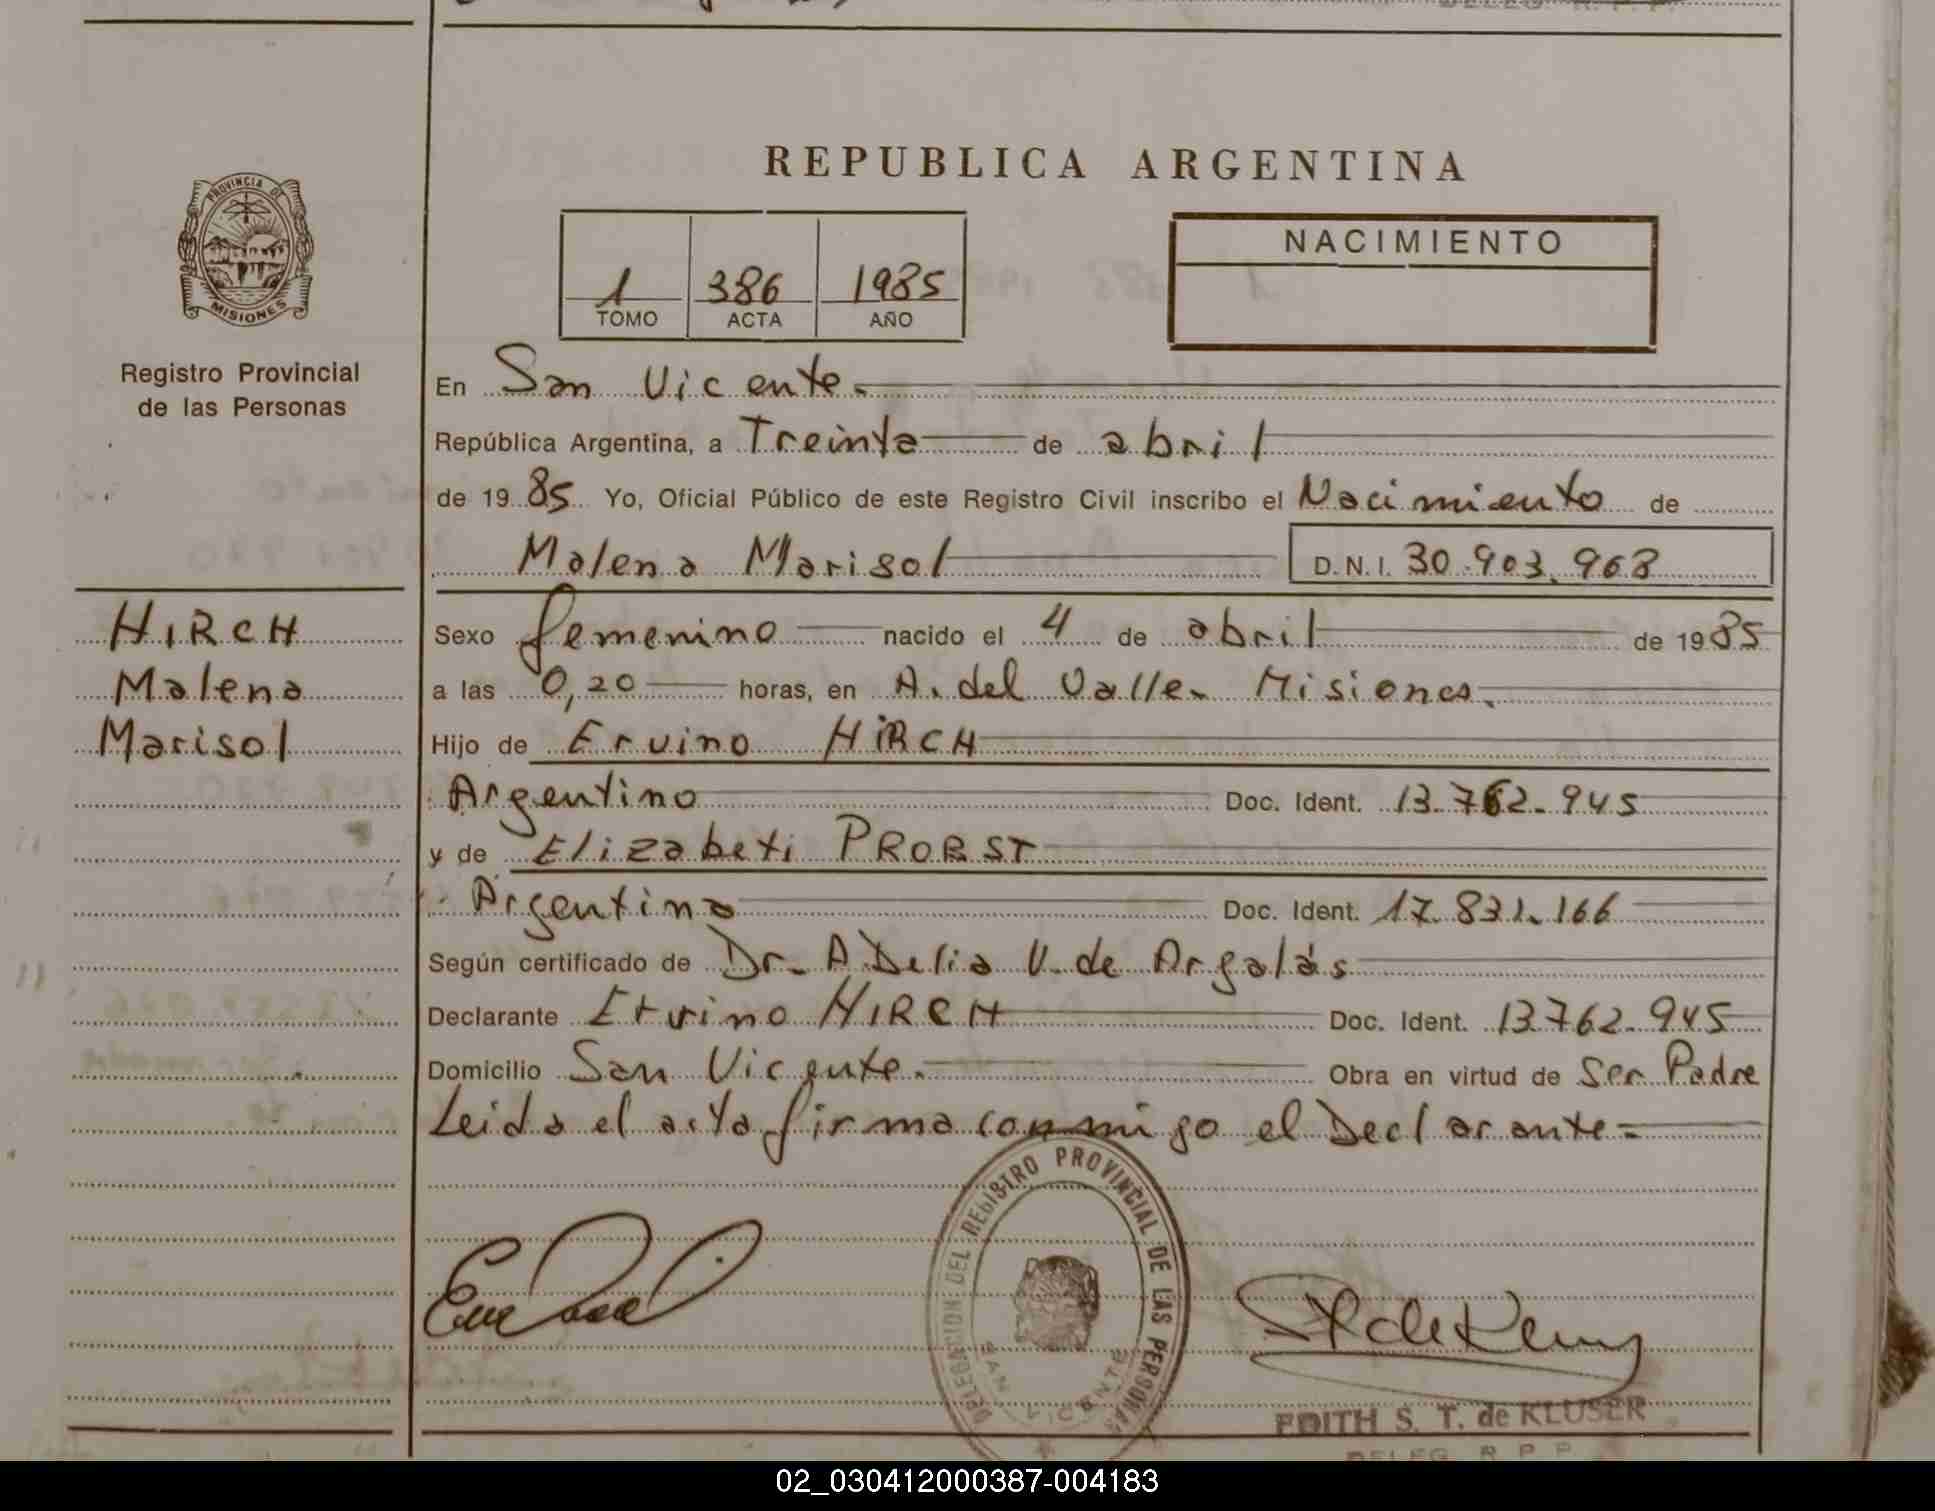 DELEG. R. P. P.
REPUBLICA ARGENTINA
PROVINCIA DE
MISIONES
1 386 1985
TOMO ACTA AÑO
NACIMIENTO
Registro Provincial
de las Personas
En San Vicente.
República Argentina, a Treinta de abril
de 1985 Yo, Oficial Público de este Registro Civil inscribo el Nacimiento de
Malena Marisol D.N.I. 30.903.968
HIRCH
Malena
Marisol
Sexo femenino nacido el 4 de abril de 1985
a las 0,20 horas, en A. del Valle. Misiones.
Hijo de Ervino HIRCH
Argentino Doc. Ident. 13.762.945
y de Elizabeti PROBST
Argentina Doc. Ident. 17.831.166
Según certificado de Dr. ADelia V. de Argalás
Declarante Ervino HIRCH Doc. Ident. 13.762.945
Domicilio San Vicente. Obra en virtud de Ser Padre
Leida el acta firma conmigo el Declarante.=
DELEGACION DEL REGISTRO PROVINCIAL DE LAS PERSONAS
SAN VICENTE
EDITH S. T. de KLUSER
DELEG. R. P. P.
02_030412000387-004183